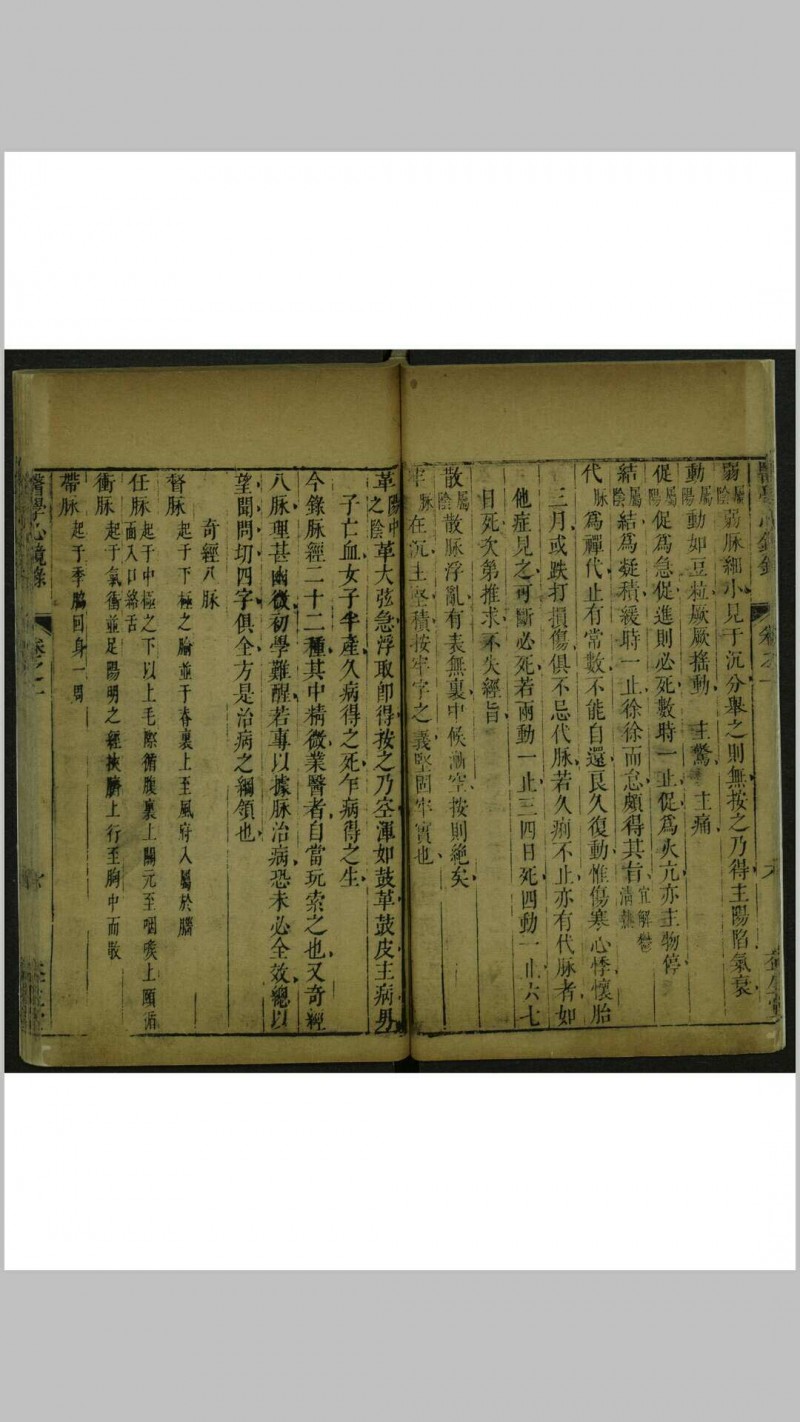 弱屬陰弱脉細小見于沉分舉之則無按之乃得主陽陷氣衰
動屬陽動如豆粒厥厥揺動主驚主痛
促屬陽促為急促進則必死數時一止促為火亢亦主物停
結屬陰結為凝積緩時一止徐徐而怠頗得其旨宜解鬱清熱
代脉為禪代止有常數不能自還良久復動惟傷寒心悸懷胎
三月或跌打損傷俱不忌代脉若久痢不止亦有代脉者如
他症見之可斷必死若兩動一止三四日死四動一止六七
日死次第推求不失經旨
散屬陰散脉浮亂有表無裏中候漸空按則絶矣
牢脉在沉主堅積按牢字之義堅固牢實也
革陽中之陰革大弦急浮取即得按之乃空渾如鼓革鼓皮主病男
子亡血女子半產久病得之死乍病得之生
今錄脉經二十二種其中精微業醫者自當玩索之也又奇經
八脉理甚幽微初學難醒若專以據脉治病恐未必全效總以
望聞問切四字俱全方是治病之綱領也
奇經八脉
督脉起于下極之腧並于脊裏上至風府入屬於腦
任脉起于中極之下以上毛際循腹裏上關元至咽喉上頤循
面入口絡舌
衝脉起于氣衝並足陽明之經挾臍上行至胸中而散
帶脉起于季脇回身一周
醫學心鏡錄 卷之一